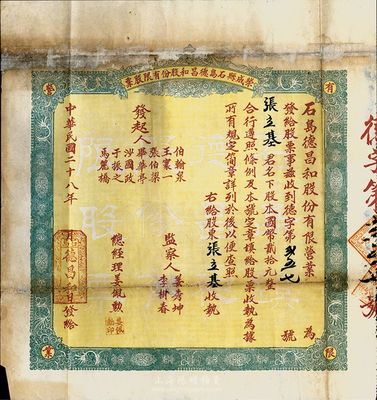 榮成縣石島德昌和股份有限股票
有
營
限
業
石島德昌和股份有限營業 為
發給股票事茲收到德字第 號
張立基 君名下股本國幣貳拾元整
合行遵照條例及本號定章填給股票收執為據
所有規定簡章詳列於後以便查照
右給股東張立基收執
發起人
伯翰泉
王寰一
張伯梁
畢華亭
于振之
馬蔭橋
監察人
姜秀坤
李樹春
總經理姜毓勲
中華民國二十八年
德昌和發給
德字第
號